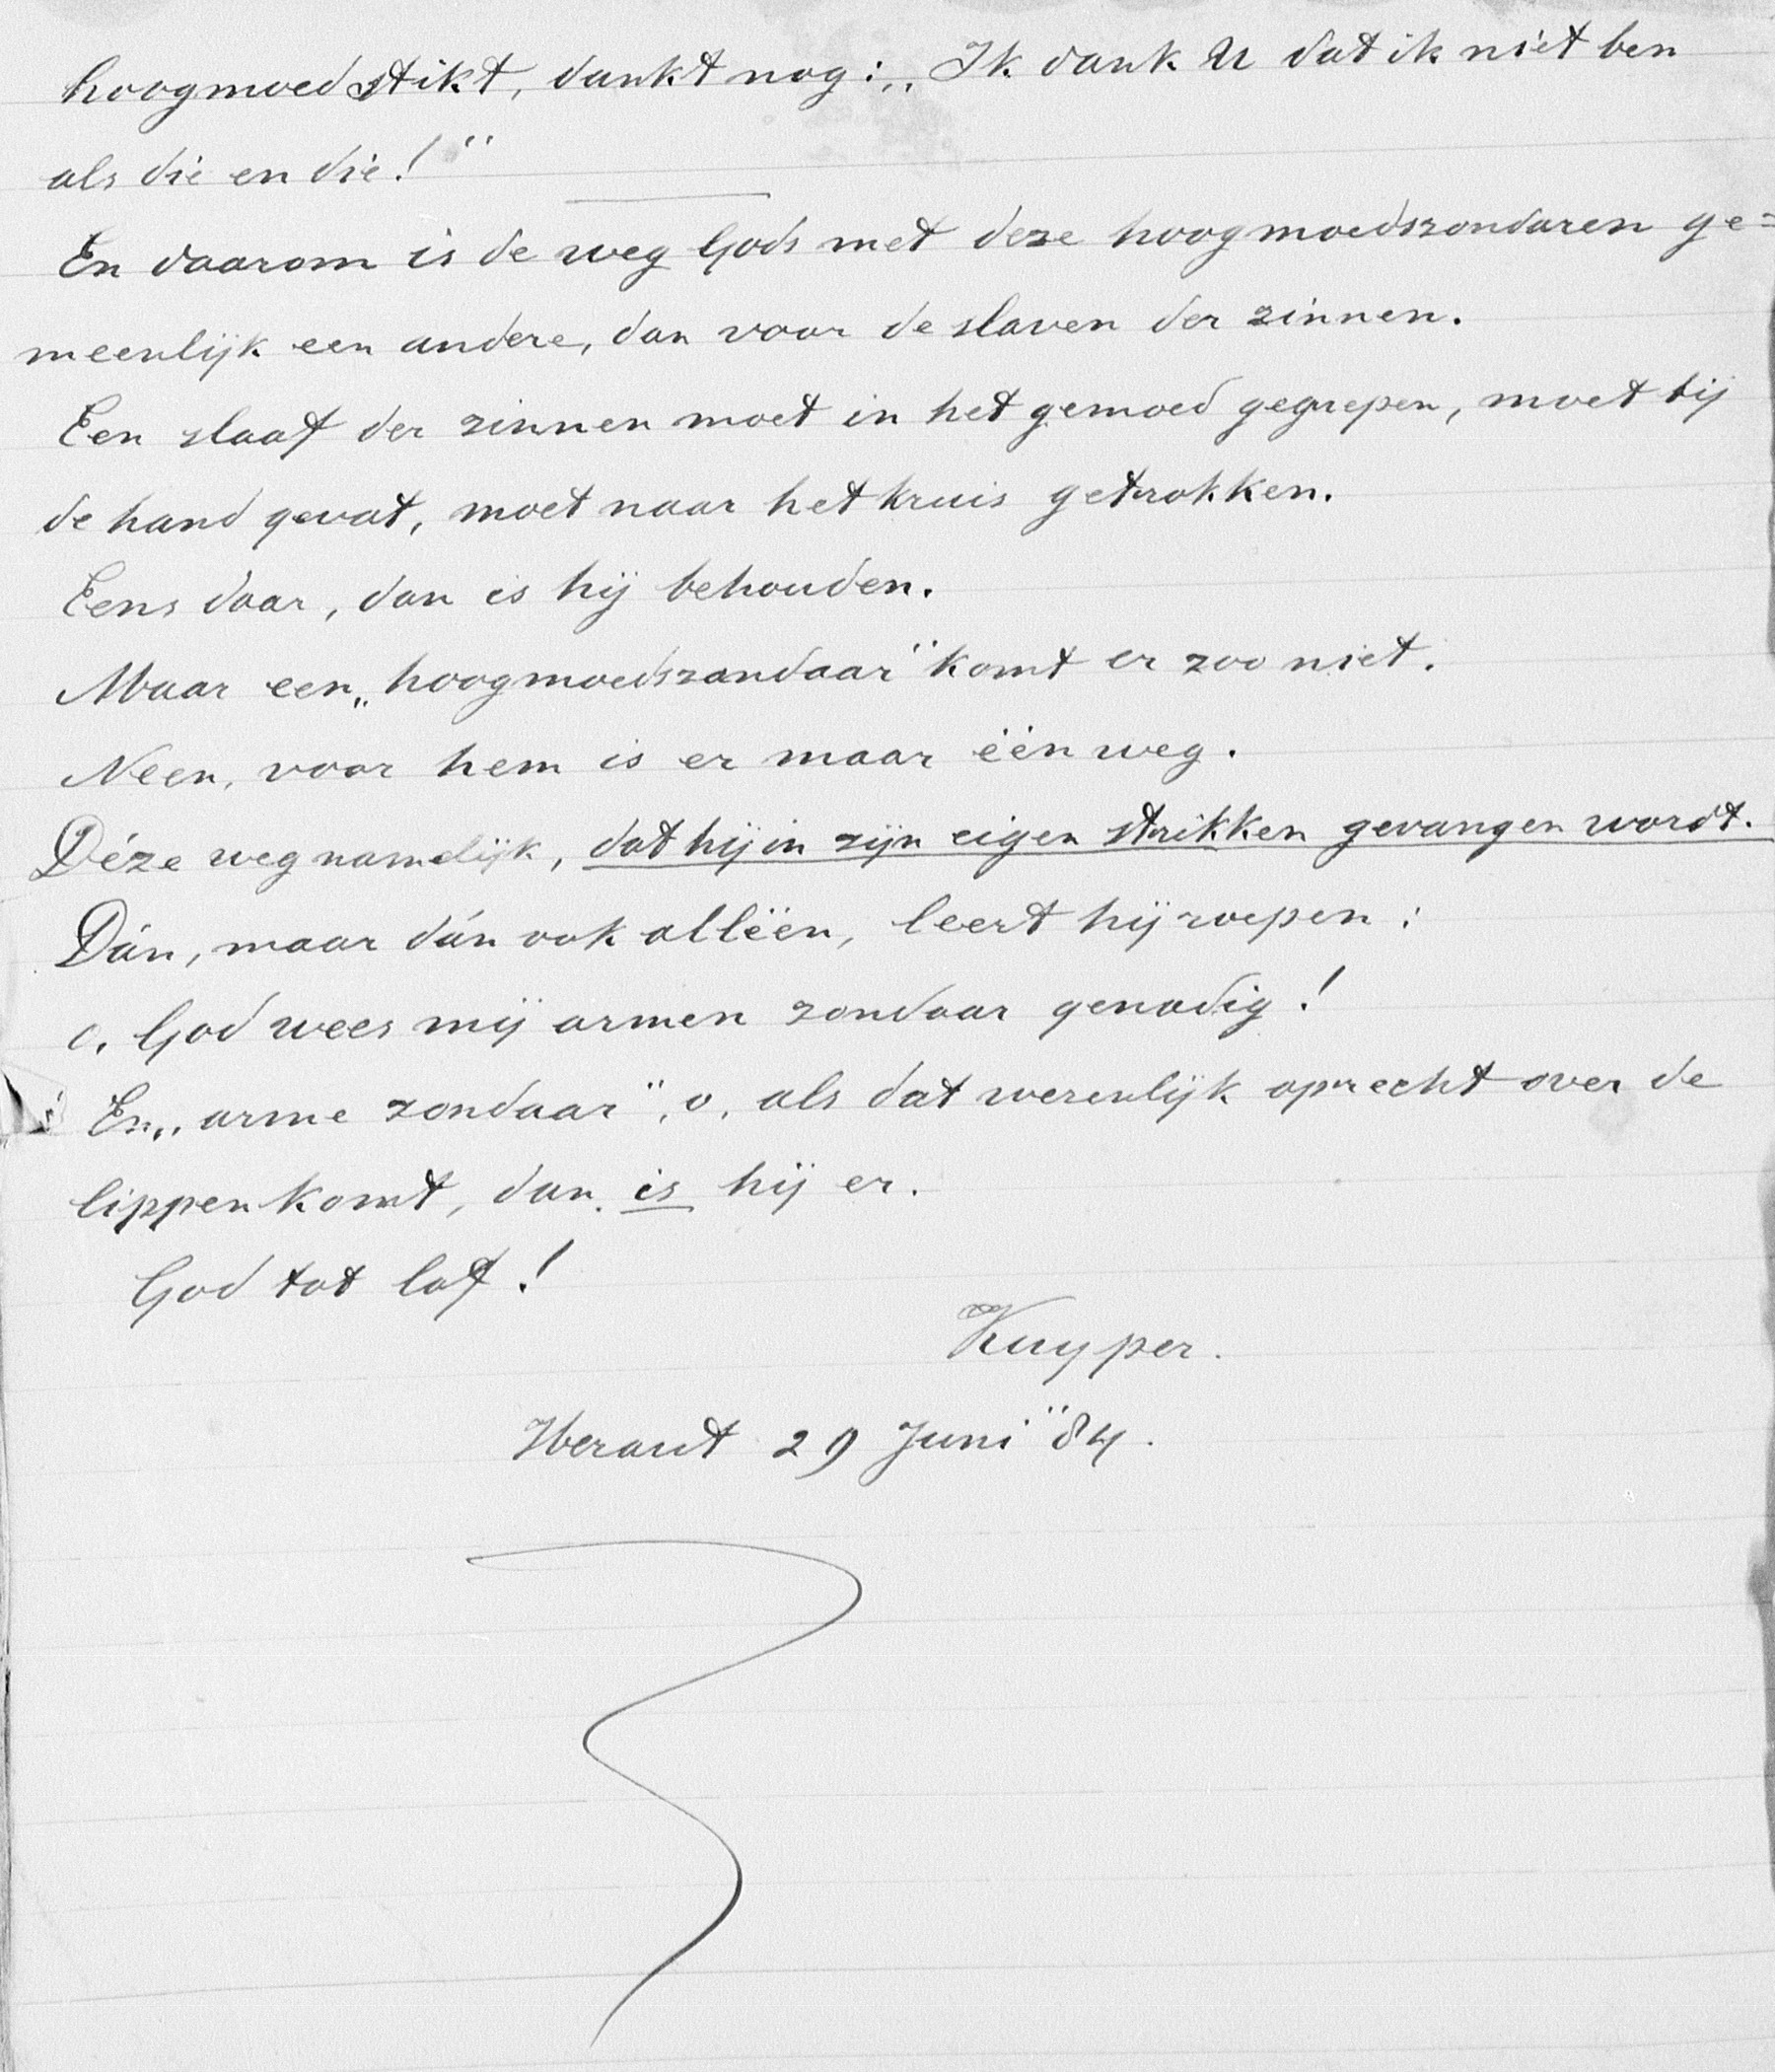 hoogmoed stikt, dankt nog: „Ik dank U dat ik niet ben
als die en die!"
En daarom is de weg Gods met deze hoogmoedszondaren ge=
meenlijk een andere, dan voor de slaven der zinnen.
Een slaaf der zinnen moet in het gemoed gegrepen, moet bij
de hand gevat, moet naar het kruis getrokken.
Eens daar, dan is hij behouden.
Maar een „hoogmoedszondaar" komt er zoo niet.
Neen, voor hem is er maar één weg.
Déze weg namelijk, dat hij in zijn eigen strikken gevangen wordt.
Dán, maar dán ook alléén, leert hij roepen:
o, God wees mij armen zondaar genadig!
En „arme zondaar", o, als dat wezenlijk oprecht over de
lippen komt, dan is hij er.
God tot lof!
Kuyper.
Heraut 29 Juni "84.